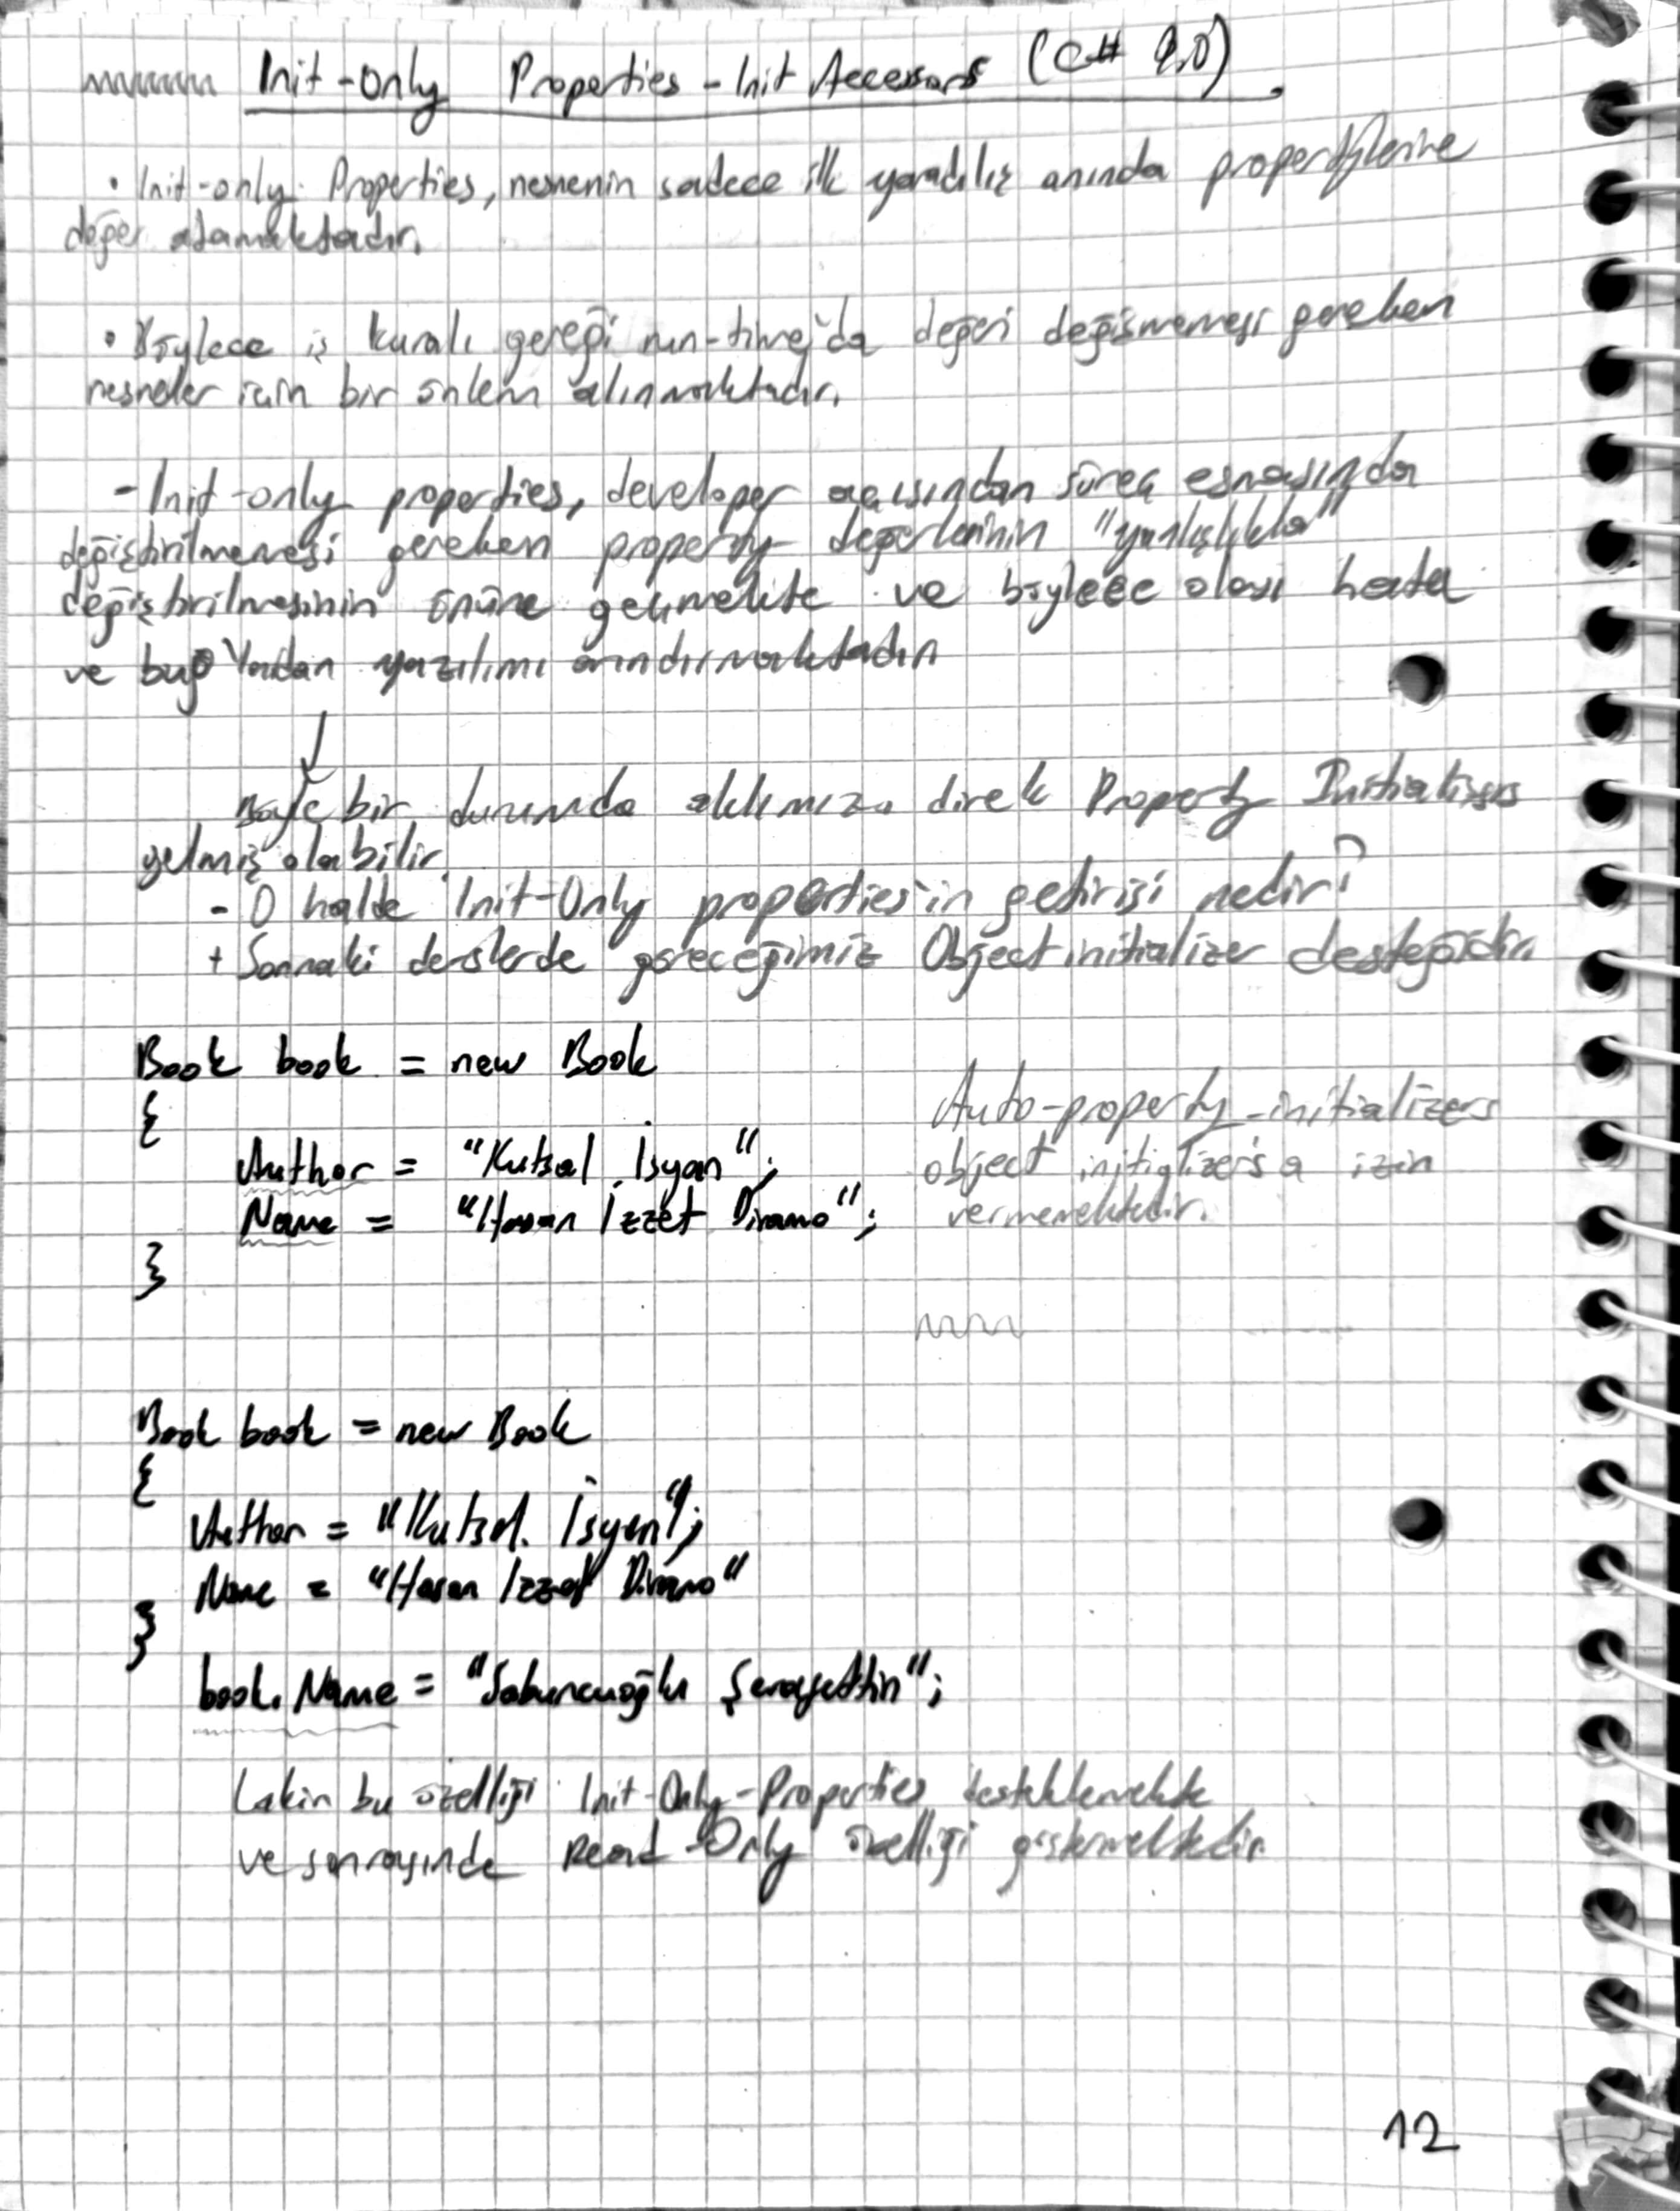 Init-Only Properties - Init Accessors (C# 9.0)
• Init-only Properties, nesnenin sadece ilk yaradılış anında propertylerine
değer atamaktadır.
• Böylece iş kuralı gereği run-time'da değeri değişmemesi gereken
nesneler için bir önlem alınmaktadır.
- Init-only properties, developer açısından süreç esnasında
değiştirilmemesi gereken property değerlerinin "yanlışlıkla"
değiştirilmesinin önüne geçmekte ve böylece olası hata
ve bug'lardan yazılımı arındırmaktadır
↓
Böyle bir durumda aklımıza direk Property Initializers
gelmiş olabilir.
- O halde Init-Only properties'in getirisi nedir?
+ Sonraki derslerde göreceğimiz Object initializer desteğidir.
Book book = new Book
{
Author = "Kutsal İsyan";
Name = "Hasan İzzet Dinamo";
}
Auto-property-initializers
object initializers'a izin
vermemektedir.
Book book = new Book
{
Author = "Kutsal İsyan";
Name = "Hasan İzzet Dinamo"
}
book.Name = "Sabuncuoğlu Şerafettin";
Lakin bu özelliği Init-Only-Properties desteklemekte
ve sonrasında Read-Only özelliği göstermektedir.
12